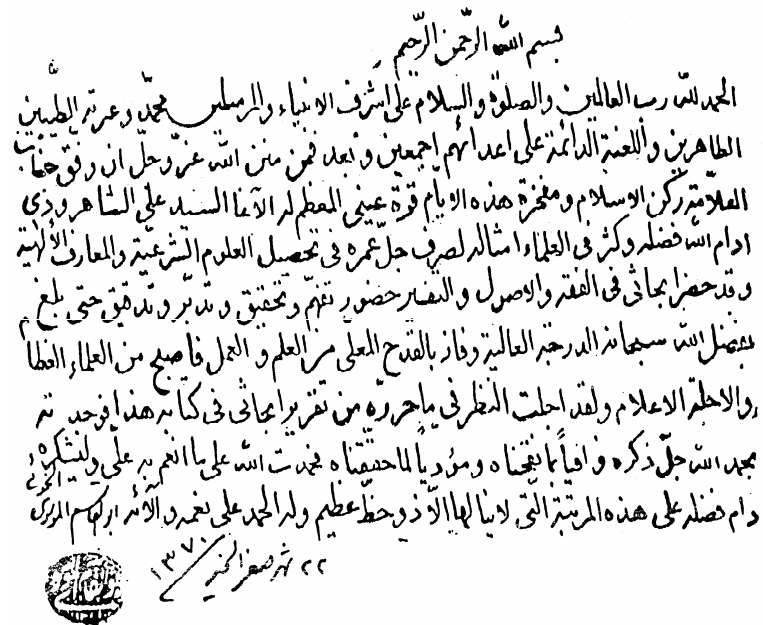 بسم الله الرحمن الرحيم
الحمد لله رب العالمين والصلوة والسلام على اشرف الانبياء والمرسلين محمد وعترته الطيبين
الطاهرين واللعنة الدائمة على اعدائهم اجمعين وبعد فمن منن الله عز وجل ان وفق جناب
العلامة ركن الاسلام ومفخرة هذه الايام قرة عيني المعظم له الآغا السيد علي الشاهرودي
ادام الله فضله وكثر في العلماء امثاله لصرف جل عمره في تحصيل العلوم الشرعية والمعارف الالهية
وقد حضر ابحاثي في الفقه والاصول والتفسير حضور تفهم وتحقيق وتدبر وتدقيق حتى بلغ
بفضل الله سبحانه الدرجة العالية وفاز بالقدح المعلى من العلم والعمل فاصبح من العلماء العظام
والاجلة الاعلام ولقد اجلت النظر في ما حرره من تقرير ابحاثي في كتابه هذا فوجدته
بحمد الله جل ذكره وافياً بما نقحناه ومؤدياً لما حققناه فحمدت الله على ما انعم به علي وليشكره
دام فضله على هذه المرتبة التي لا ينالها الا ذو حظ عظيم وله الحمد على نعمه وآلائه ابوالقاسم الموسوي الخوئي
٢٢ شهر صفر الخير ١٣٧٠